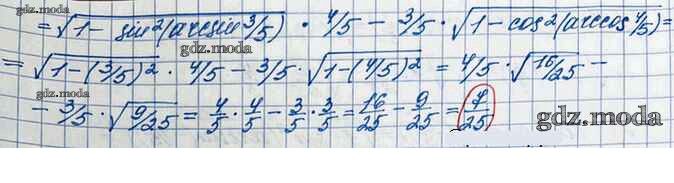 gdz.moda
= √(1 - sin²(arcsin 3/5)) · 4/5 - 3/5 · √(1 - cos²(arccos 4/5)) =
gdz.moda gdz.moda
= √(1-(3/5)²) · 4/5 - 3/5 · √(1-(4/5)²) = 4/5 · √(16/25) -
gdz.moda
- 3/5 · √(9/25) = 4/5 · 4/5 - 3/5 · 3/5 = 16/25 - 9/25 = 7/25
gdz.moda
gdz.moda